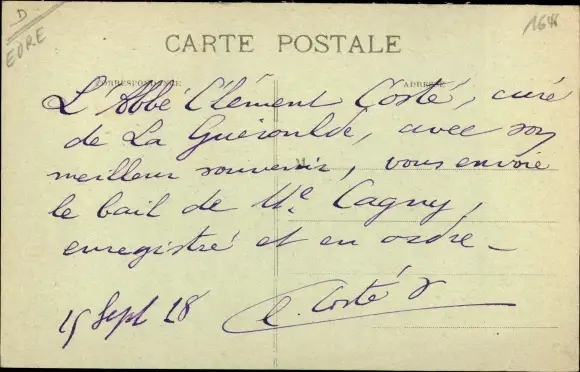 D
EURE
CARTE POSTALE
CORRESPONDANCE
ADRESSE
L'Abbé Clément Costé, curé
de La Guéroulde, avec son
meilleur souvenir, vous envoie
le bail de Me Cagny,
enregistré et en ordre _
15 Sept 28
C. Costé